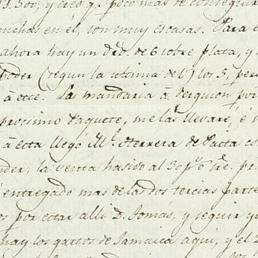 1.300, y creo q.e poco mas se conseguir
muchas en el, son muy escasas. Para e
ahora hay un dro. de 6 sobre plata, y
poder (segun la ultima del) los 5, per
à doce. La mandaria à
proximo Paquete, me las llevare, è
à esta llegó M.r Herrera de
der, la venta ha sido al 30 p%
entregado mas de las dos tercias parte
os por estar alli D. Tomas, y seguir y
hay los gastos de Jamaica aqui, y el 2